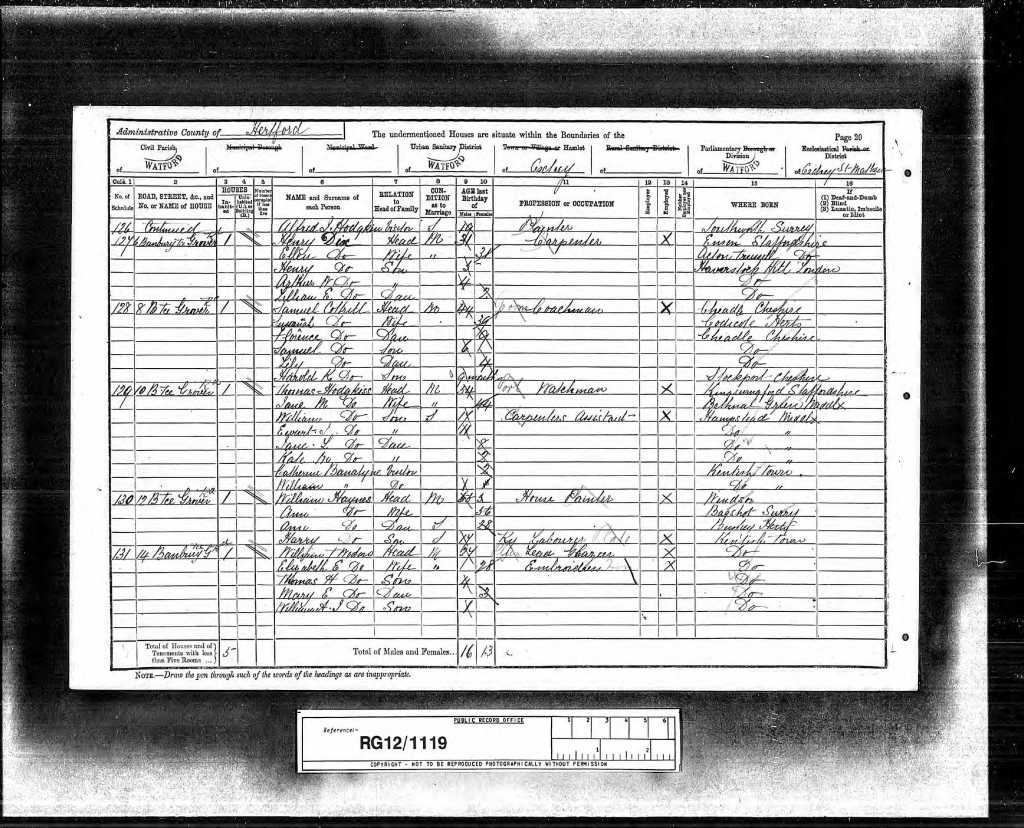 Administrative County of Hertford
The undermentioned Houses are situate within the Boundaries of the
Page 20
Civil Parish Municipal Borough Municipal Ward Urban Sanitary District Town or Village or Hamlet Rural Sanitary District Parliamentary Borough or Division Ecclesiastical Parish or District
of WATFORD of of of WATFORD of Oxhey of of WATFORD of Oxhey St Matthew
Cols. 1 2 3 4 5 6 7 8 9 10 11 12 13 14 15 16
No. of Schedule ROAD, STREET, &c., and No. or NAME of HOUSE HOUSES Inhabited Uninhabited NAME and Surname of each Person RELATION to Head of Family CONDITION as to Marriage AGE last Birthday of Males Females PROFESSION or OCCUPATION Employer Employed WHERE BORN
(1) Deaf-and-Dumb
(2) Blind
(3) Lunatic, Imbecile or Idiot
126 Continued Alfred J. Hodgkins Visitor S 19 Painter Surrey
127 6 Banbury Grove 1 Henry Dix Head M 31 Carpenter X Staffordshire
Ellen Do Wife " 31 Acton Do
Henry Do Son 5 Haverstock Hill London
Arthur W. Do " 4 Do
Lillian E. Do Dau 2 Do
128 8 B Grove 1 Samuel Head 44 Coachman X Cheadle Cheshire
Do Wife 39 Codicote Herts
Florence Do Dau 9 Cheadle Cheshire
Samuel Do Son 6 Do
Lily Do Dau 4 Do
Harold R. Do Son 9 months Stockport Cheshire
129 10 B Grove 1 Thomas Hodgkiss Head M 54 Watchman X Staffordshire
Jane M. Do Wife " 44 Bethnal Green Middlx
William Do Son S Carpenters Assistant X Hampstead Middlx
Do " Do "
Jane L. Do Dau 8 Do "
Kate Do Dau 2 Do "
Catherine Visitor 2 Kentish Town
William " Do Do "
130 12 B Grove 1 William Haynes Head M House Painter X Windsor
Ann Do Wife 56 Bagshot Surrey
Ann Do Dau S 28 Bushey Herts
Harry Do Son S Ry Labourer X Kentish Town
131 14 Banbury 1 William T Head M Lead Glazier X Do
Elizabeth E Do Wife " 28 X Do
Thomas H Do Son 4 Do
Mary E Do Dau 3 Do
William A. J Do Son 1 Do
Total of Houses and of Tenements with less than Five Rooms 5 Total of Males and Females... 16 13
NOTE.—Draw the pen through such of the words of the headings as are inappropriate.
PUBLIC RECORD OFFICE
Reference:-
RG12/1119
1 2 3 4 5 6
1 2
COPYRIGHT - NOT TO BE REPRODUCED PHOTOGRAPHICALLY WITHOUT PERMISSION